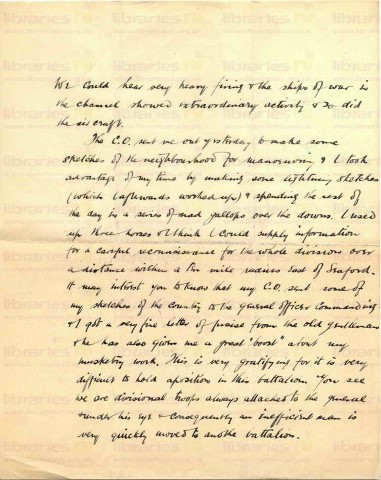 We could hear very heavy firing & the ships of war in
the channel showed extraordinary activity & so did
the air craft.
The C.O. sent me out yesterday to make some
sketches of the neighbourhood for manoeuvring & I took
advantage of my time by making some lightning sketches
(which I afterwards worked up) & spending the rest of
the day in a series of mad gallops over the downs. I used
up three horses & I think I could supply information
for a careful reconnaissance for the whole division over
a distance within a ten mile radius East of Seaford.
It may interest you to know that my C.O. sent some of
my sketches of the country to the general officer commanding
& I got a very fine letter of praise from the old gentleman
& he has also given me a great "boost" about my
musketry work. This is very gratifying for it is very
difficult to hold a position in this battalion. You see
we are divisional troops always attached to the general
& under his eye & consequently an inefficient man is
very quickly moved to another battalion.